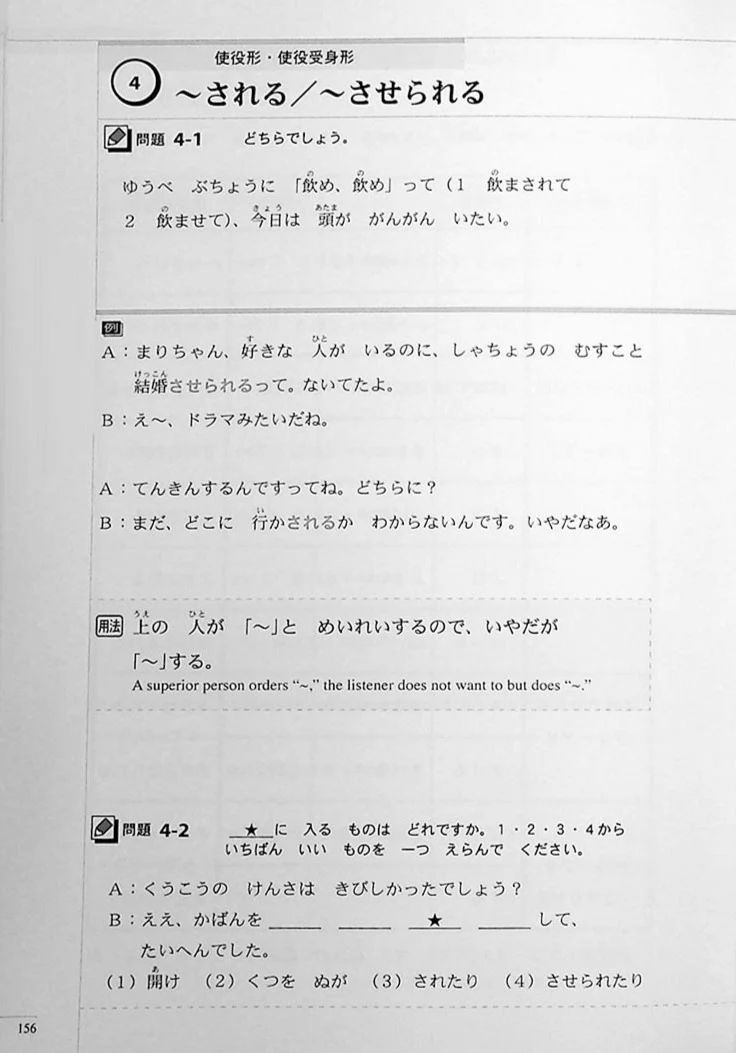 使役形・使役受身形
4 ～される／～させられる
問題 4-1 どちらでしょう。
ゆうべ ぶちょうに 「飲め、飲め」って（1 飲まされて
2 飲ませて）、今日は 頭が がんがん いたい。
例
A：まりちゃん、好きな 人が いるのに、しゃちょうの むすこと
結婚させられるって。ないてたよ。
B：え～、ドラマみたいだね。
A：てんきんするんですってね。どちらに？
B：まだ、どこに 行かされるか わからないんです。いやだなあ。
用法 上の 人が 「～」と めいれいするので、いやだが
「～」する。
A superior person orders “~,” the listener does not want to but does “~.”
問題 4-2 ★に 入る ものは どれですか。1・2・3・4から
いちばん いい ものを 一つ えらんで ください。
A：くうこうの けんさは きびしかったでしょう？
B：ええ、かばんを ＿＿＿ ＿＿＿ ★ ＿＿＿ して、
たいへんでした。
（1）開け （2）くつを ぬが （3）されたり （4）させられたり
156